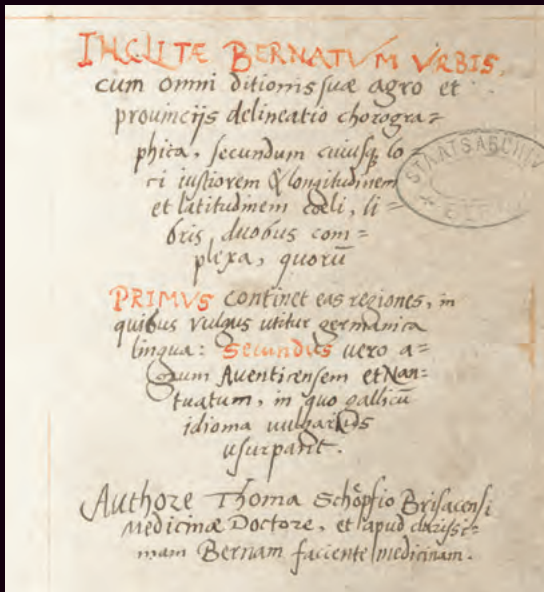 INCLITÆ BERNATVM VRBIS,
cum omni ditionis suæ agro et
prouincijs delineatio chorogra=
phica, secundum cuiusq; lo=
ci iustiorem & longitudinem
et latitudinem cœli, li=
bris, duobus com=
plexa, quorū
PRIMVS continet eas regiones, in
quibus vulgus utitur germanica
lingua: Secundus uero a=
grum Auenticensem et Nan=
tuatum, in quo gallicū
idioma uulgariūs
usurpant.
Authore Thoma Schöpfio Brisacensi
Medicinæ Doctore, et apud clarissi=
mam Bernam faciente medicinam.
STAATSARCHIV